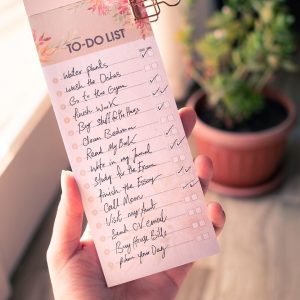 TO-DO LIST
Water plants
wash the Dishes
Go to the Gym
finish Work
Buy stuff for the House
Clean Bedroom
Read My Book
Write in my Journal
Study for the Exam
finish the Essay
Call Mom
Visit my Aunt
Send email
Pay House Bills
plan your Day